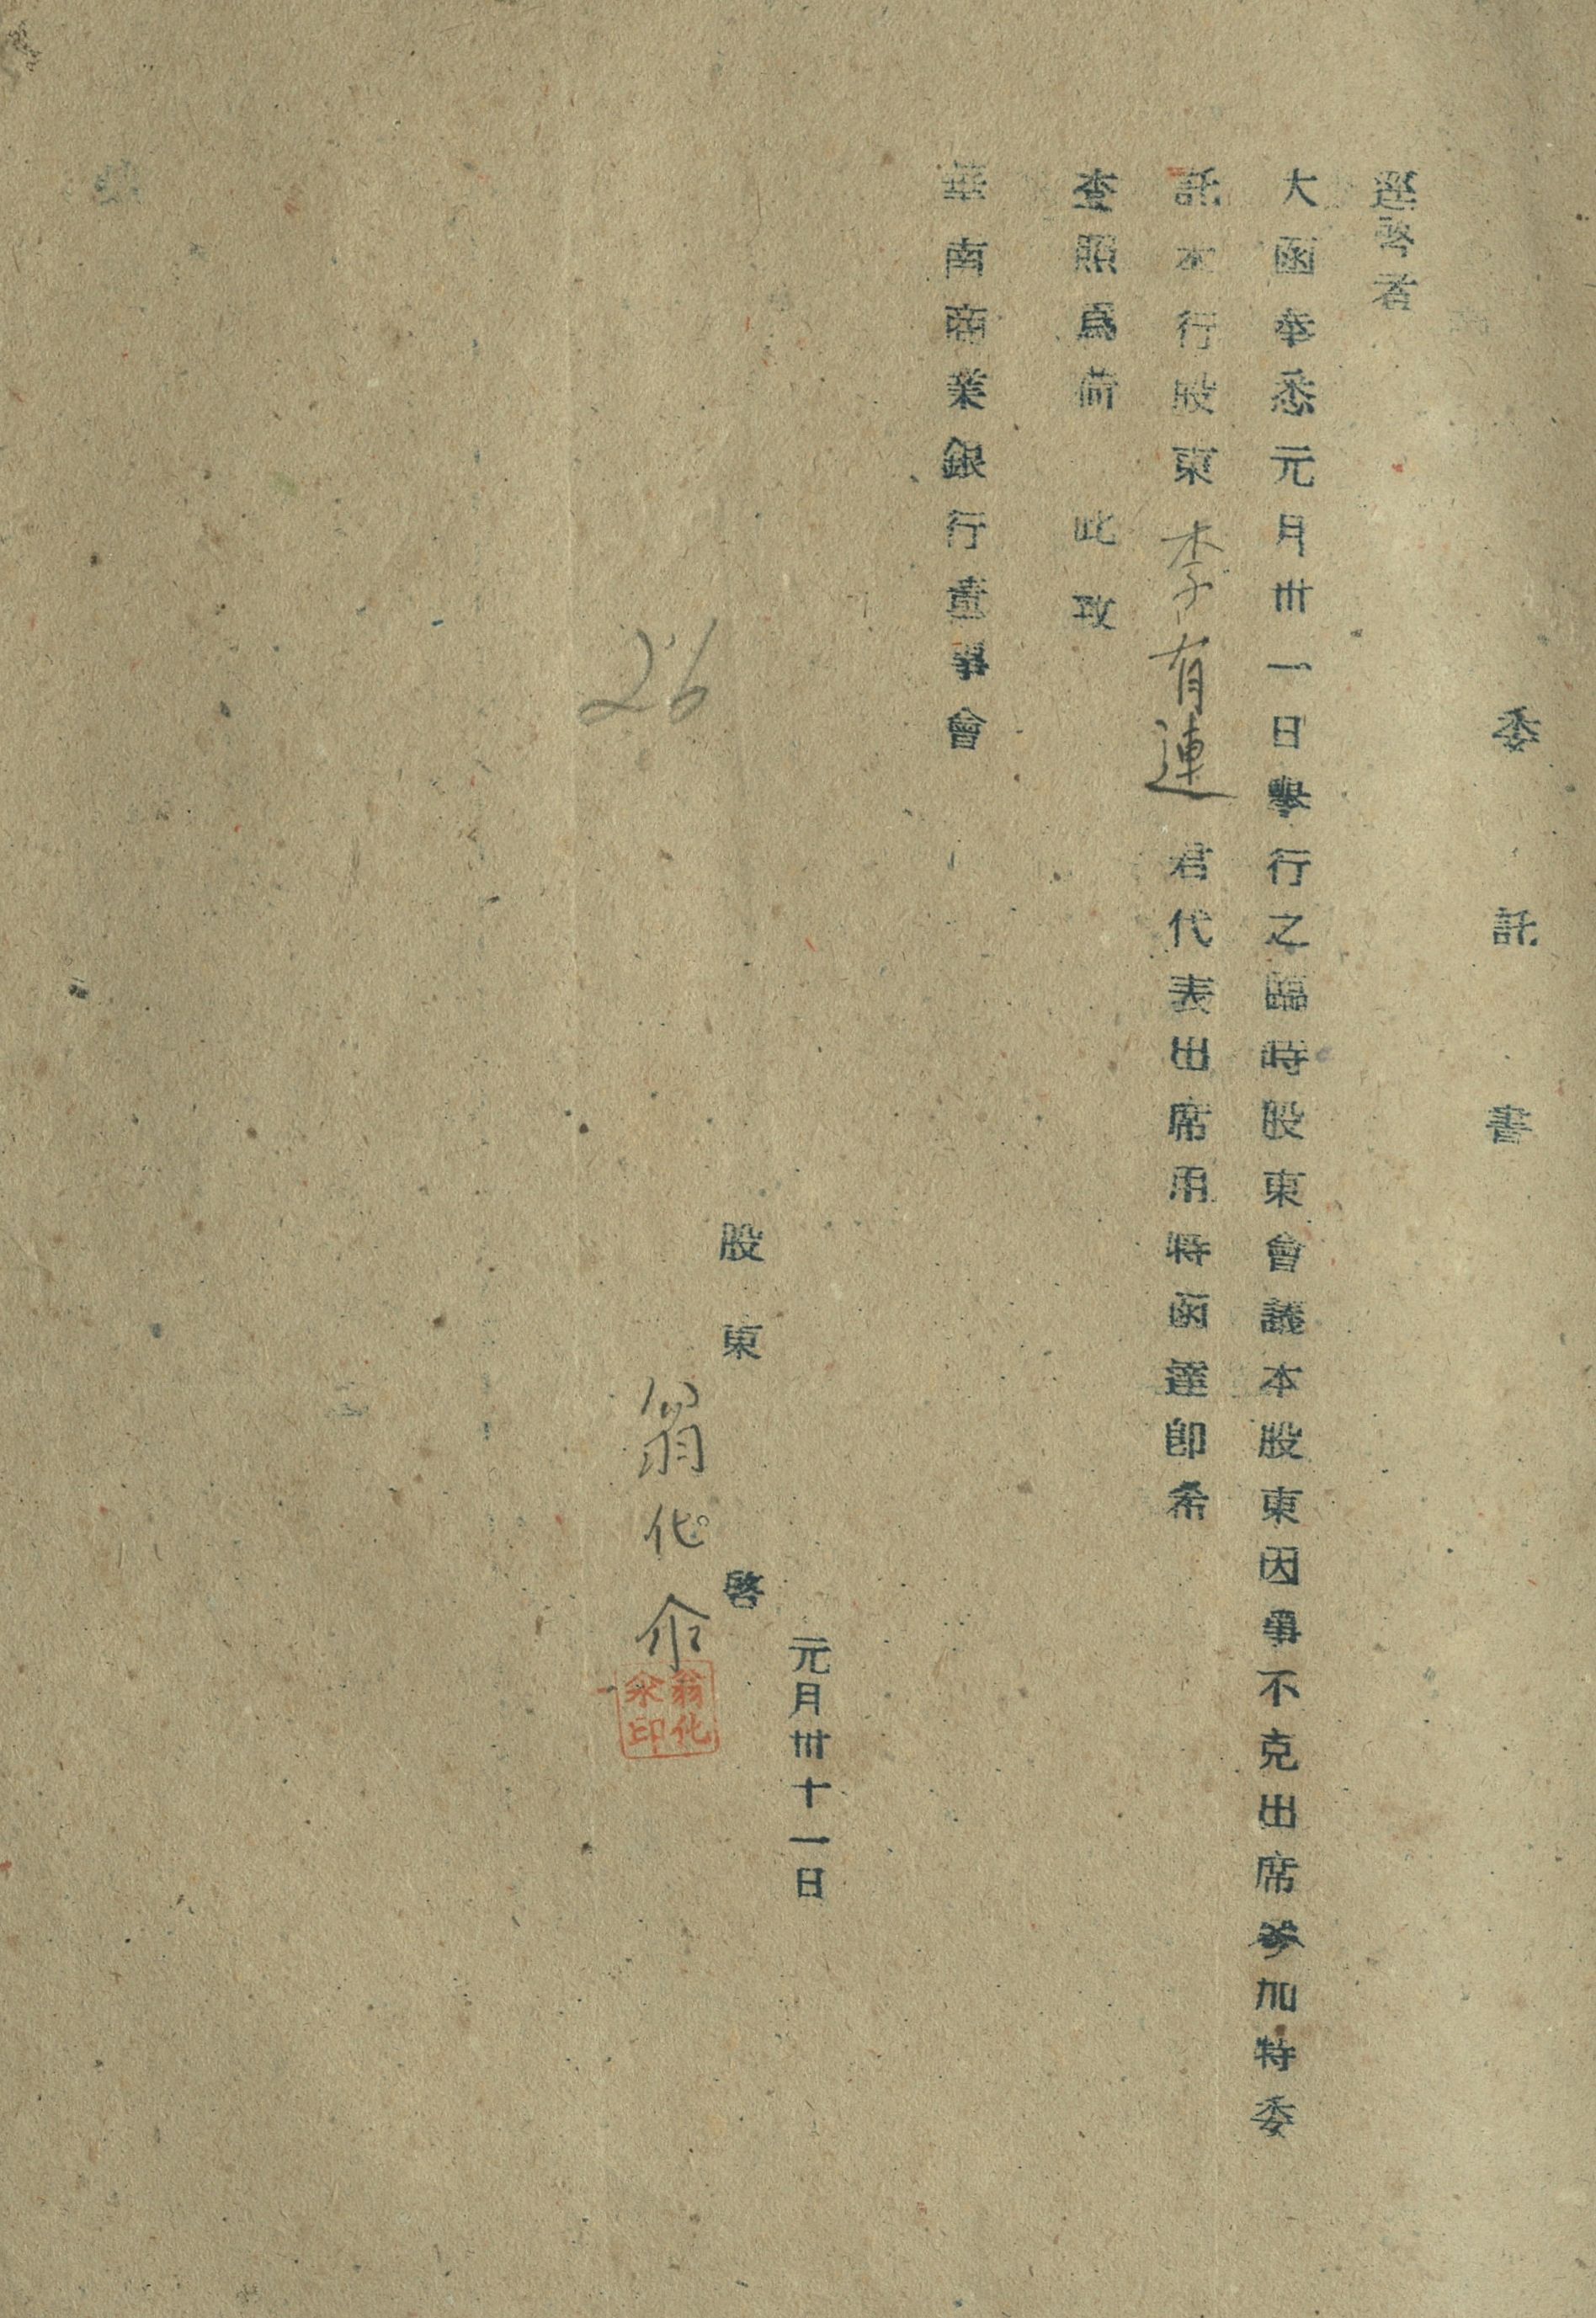 委託書
逕啓者
大函奉悉元月卅一日擧行之臨時股東會議本股東因事不克出席參加特委
託本行股東李有連君代表出席用特函達卽希
查照爲荷 此致
華南商業銀行董事會
元月卅十一日
股東 啓
翁化
翁化印
26